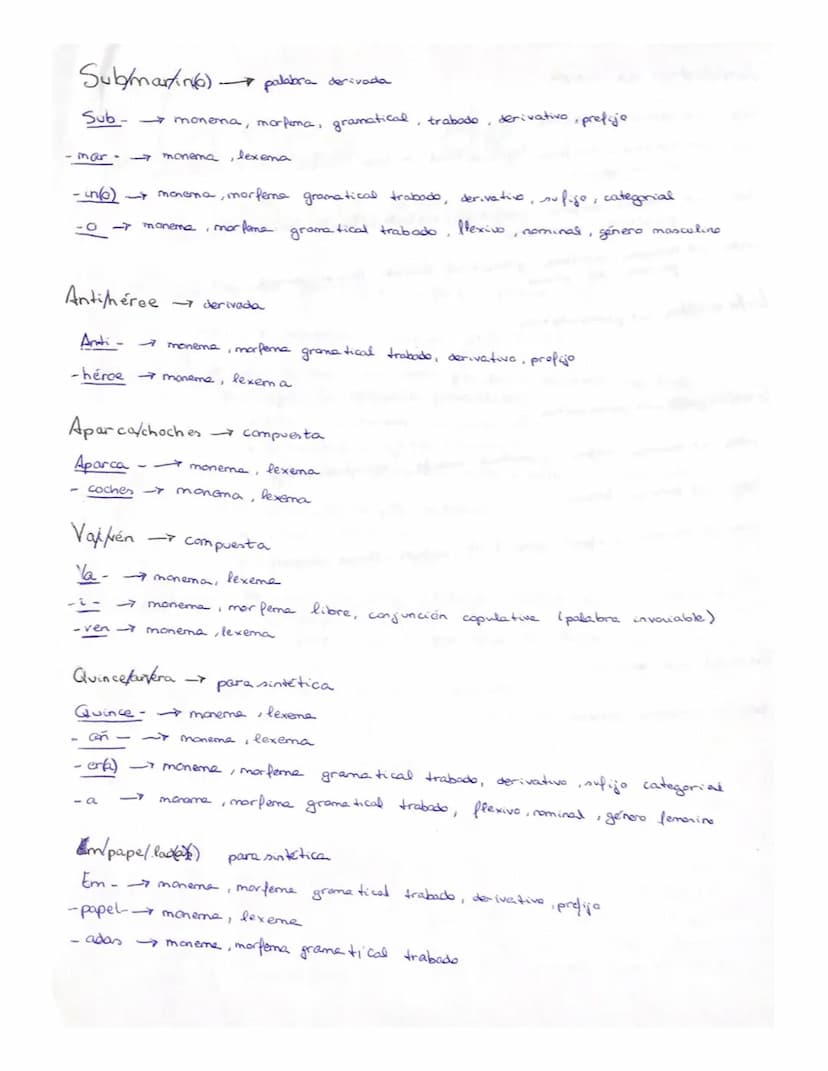 Sub/mar/in(o) → palabra derivada
Sub- → monema, morfema, gramatical, trabado, derivativo, prefijo
-mar- → monema, lexema
-in(o) → monema, morfema gramatical trabado, derivativo, sufijo, categorial
-o → monema, morfema gramatical trabado, flexivo, nominal, género masculino
Anti/héroe → derivada
Anti- → monema, morfema gramatical trabado, derivativo, prefijo
-héroe → monema, lexema
Aparca/choches → compuesta
Aparca - → monema, lexema
- coches → monema, lexema
Va/i/vén → compuesta
Va- → monema, lexema
-i- → monema, morfema libre, conjunción copulativa (palabra invariable)
-ven → monema, lexema
Quince/añ/era → parasintética
Quince - → monema, lexema
- añ - → monema, lexema
- er(a) → monema, morfema gramatical trabado, derivativo, sufijo categorial
-a → monema, morfema gramatical trabado, flexivo, nominal, género femenino
Em/papel/ parasintética
Em- → monema, morfema gramatical trabado, derivativo, prefijo
-papel- → monema, lexema
- adas → monema, morfema gramatical trabado